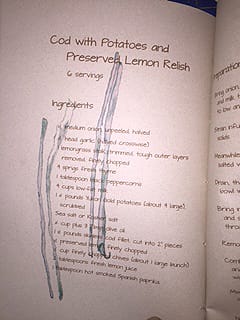 Cod with Potatoes and
Preserved Lemon Relish
6 servings
Ingredients
1 medium onion, unpeeled, halved
1 head garlic, halved crosswise
1 lemongrass stalk, trimmed, tough outer layers
removed, finely chopped
4 sprigs fresh thyme
1 tablespoon black peppercorns
4 cups low-fat milk
1 ½ pounds Yukon Gold potatoes (about 4 large),
scrubbed
Sea salt or Kosher salt
cup plus olive oil
pounds skinless cod fillet, cut into 2" pieces
preserved lemon, finely chopped
cup finely chopped chives (about 1 large bunch)
tablespoons fresh lemon juice
tablespoon hot smoked Spanish paprika
Preparation
Bring onion,
and milk
to low and
Strain
solids
Meanwhile
salted
Drain, the
bowl
Bring
and
throu
Remov
Com
and